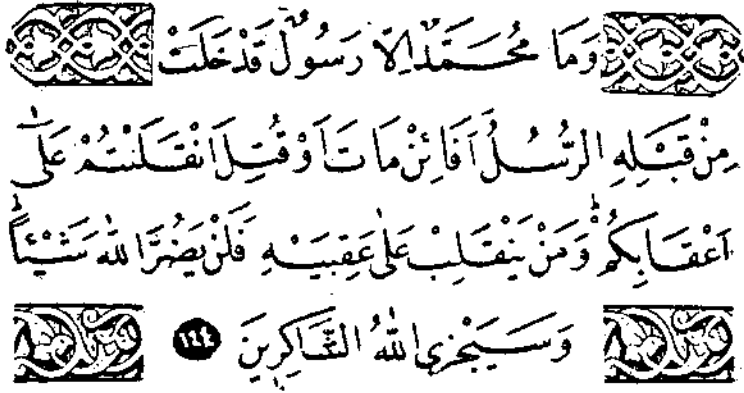 وَمَا مُحَمَّدٌ اِلَّا رَسُولٌ قَدْ خَلَتْ
مِنْ قَبْلِهِ الرُّسُلُ اَفَائِنْ مَاتَ اَوْ قُتِلَ انْقَلَبْتُمْ عَلٰٓى
اَعْقَابِكُمْ ۜ وَمَنْ يَنْقَلِبْ عَلٰى عَقِبَيْهِ فَلَنْ يَضُرَّ اللّٰهَ شَيْئًا ۜ
وَسَيَجْزِى اللّٰهُ الشَّاكِرِينَ ١٤٤